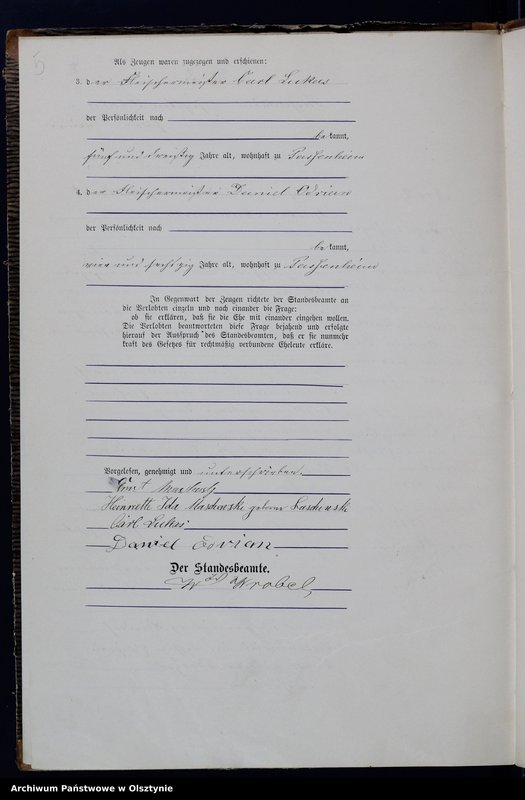 5
Als Zeugen waren zugezogen und erschienen:
3. der Fleischermeister Carl Lukas
der Persönlichkeit nach
bekannt,
fünf und dreißig Jahre alt, wohnhaft zu Passenheim
4. der Fleischermeister Daniel Edrian
der Persönlichkeit nach
bekannt,
vier und sechszig Jahre alt, wohnhaft zu Passenheim
In Gegenwart der Zeugen richtete der Standesbeamte an
die Verlobten einzeln und nach einander die Frage:
ob sie erklären, daß sie die Ehe mit einander eingehen wollen.
Die Verlobten beantworteten diese Frage bejahend und erfolgte
hierauf der Ausspruch des Standesbeamten, daß er sie nunmehr
kraft des Gesetzes für rechtmäßig verbundene Eheleute erkläre.
Vorgelesen, genehmigt und unterschrieben.
Henriette Ida geborene
Carl Lukas
Daniel Edrian
Der Standesbeamte.
Wrobel
Archiwum Państwowe w Olsztynie